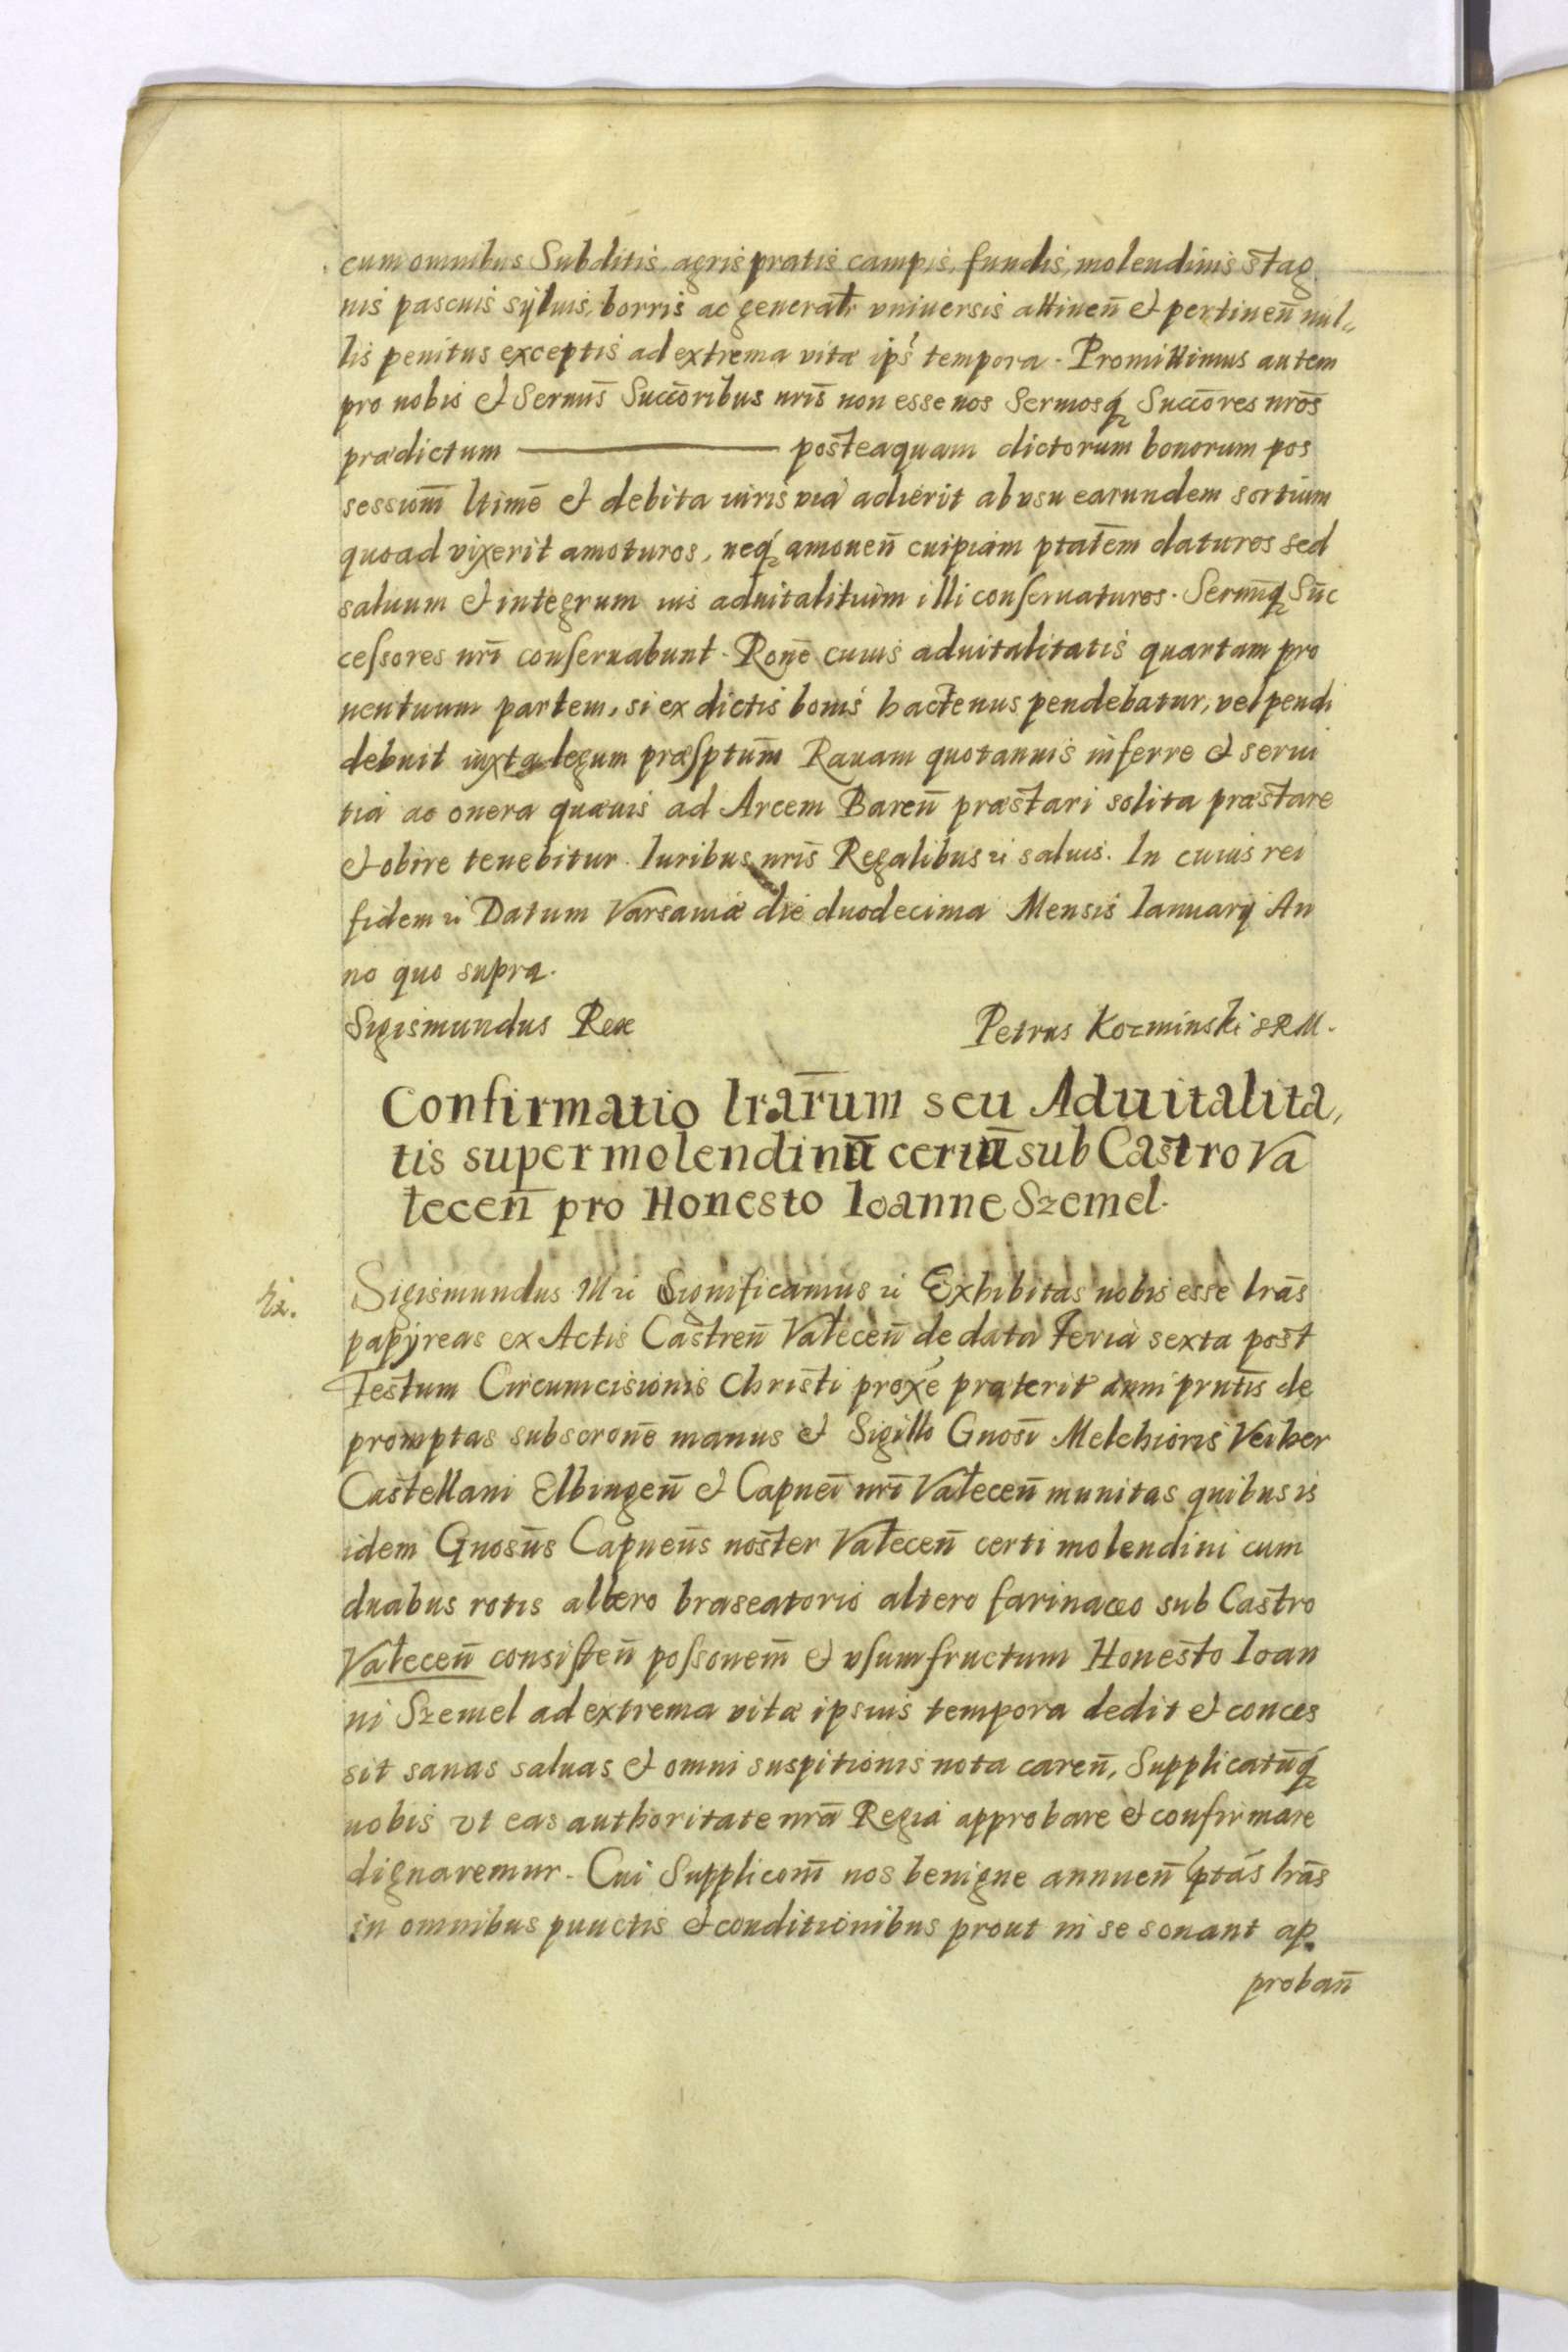 cum omnibus Subditis, agris pratis campis, fundis, molendinis stag
nis pascuis syluis, borris ac generatr vniuersis attinen̄ et pertinen̄ nul„
lis penitus exceptis ad extrema vitæ ips' tempora. Promittimus autem
pro nobis et Sermis̄ Succ̄oribus nr̄is non esse nos Sermosq́ Succ̄ores nr̄os
prædictum ——— posteaquam dictorum bonorum pos
sessiom̄ ltimē et debita iuris via adierit ab vsu earundem sortium
quoad vixerit amoturos, neq́ amouen̄ cuipiam ptatem̄ daturos sed
saluum et integrum ius aduitalituim illi conseruaturos. Sermiq̄ Suc
cessores nr̄i conseruabunt. Ronē cuius aduitalitatis quartam pro
uentuum partem, si ex dictis bonis hactenus pendebatur, vel pendi
debuit iuxta legum præsptum̄ Rauam quotannis inferre et serui
tia ac onera quæuis ad Arcem Baren̄ præstari solita præstare
et obire tenebitur. Iuribus nr̄is Regalibus ꝛc saluis. In cuius rei
fidem ꝛc Datum Varsauiæ die duodecima Mensis Ianuarij An
no quo supra.
Sigismundus Rex Petrus Kozminski SRM.
Confirmatio lrar̄um seu Aduitalita,
tis super molendinū certū sub Castro Va
lecen̄ pro Honesto Ioanne Szemel.
Sigismundus III ꝛc Significamus ꝛc Exhibitas nobis esse lrās
papyreas ex Actis Castren̄ Valecen̄ de data Feria sexta post
Festum Circumcisionis Christi proxé præterit anni prntis̄ de
promptas subscronē manus et Sigillo Gnosi̅ Melchioris Veiher
Castellani Elbingen̄ et Capnei̅ nr̄i Valecen̄ munitas quibus is
idem Gnosūs Capneūs noster Valecen̄ certi molendini cum
duabus rotis altero braseatorio altero farinaceo sub Castro
Valecen̄ consisten̄ possonem̄ et vsumfructum Honesto Ioan
ni Szemel ad extrema vitæ ipsius tempora dedit et conces
sit sanas saluas et omni suspitionis nota caren̄, Supplicatūq́
nobis vt eas authoritate nr̄a Regia approbare et confirmare
dignaremur. Cui Supplicom̄ nos benigne annuen̄ ptás lrās
in omnibus punctis et conditionibus prout in se sonant ap
proban̄